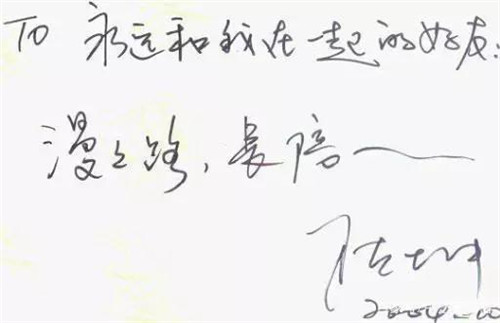 To 永远和我在一起的好友：
漫々路，长陪——
陈坤